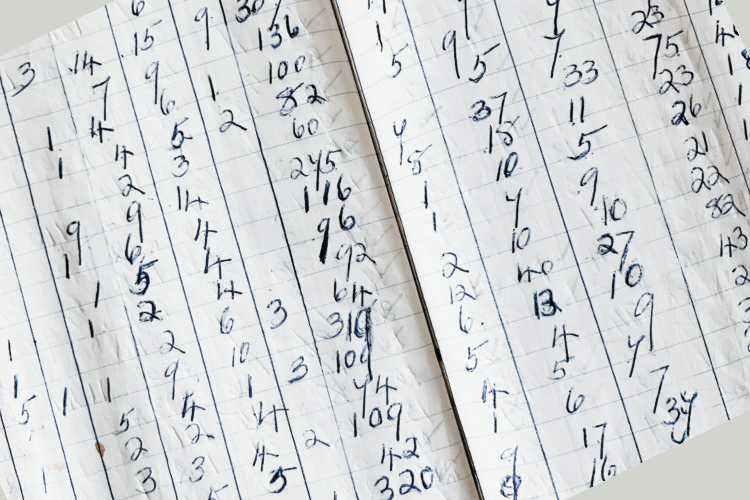 6 9 30
15 136
3 14 9 100
7 6 1 82
1 4 5 2 60
1 4 3 245
2 14 116
9 9 4 96
1 6 14 92
1 5 4 64
1 2 6 3 310
1 2 10 3 109
1 1 1 9 1 74
5 5 4 14 109
2 2 4 2 42
1 3 3 5 320
1 9 7 23
5 5 33 75
37 11 23
4 15 5 26
5 10 9 21
1 4 10 22
1 10 27 82
2 40 10 43
12 13 9 2
6 4 4
5 5 7
4 6 34
1 17
9 16